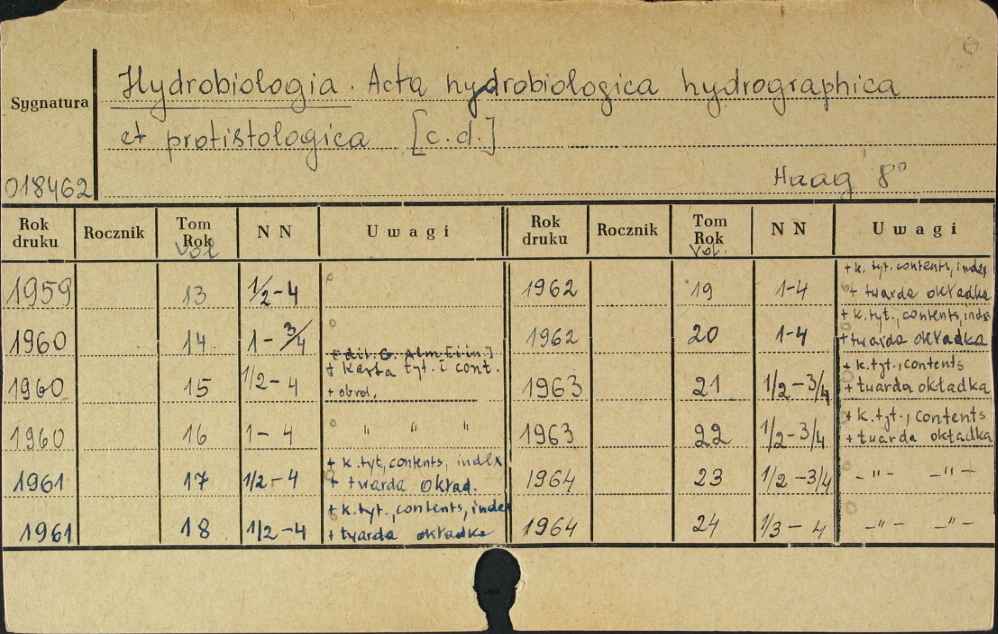 Hydrobiologia. Acta hydrobiologica hydrographica
Sygnatura
et protistologica [c.d.]
018462
Haag 8°
Rok druku Rocznik Tom Rok Vol NN Uwagi Rok druku Rocznik Tom Rok Vol. NN Uwagi
1959 13 1/2-4
1960 14 1-3/4
+ edit. G. Alm [i in.]
1960 15 1/2-4 + karta tyt. i cont.
+ obwol.
1960 16 1-4 " " "
1961 17 1/2-4 + k. tyt, contents, index
+ twarda okład.
1961 18 1/2-4 + k. tyt., contents, index
+ twarda okładka
1962 19 1-4 + k. tyt. contents, index
+ twarda okładka
1962 20 1-4 + k. tyt., contents, index
+ twarda okładka
1963 21 1/2-3/4 + k. tyt., contents
+ twarda okładka
1963 22 1/2-3/4 + k. tyt., contents
+ twarda okładka
1964 23 1/2-3/4 -"- -"-
1964 24 1/3-4 -"- -"-